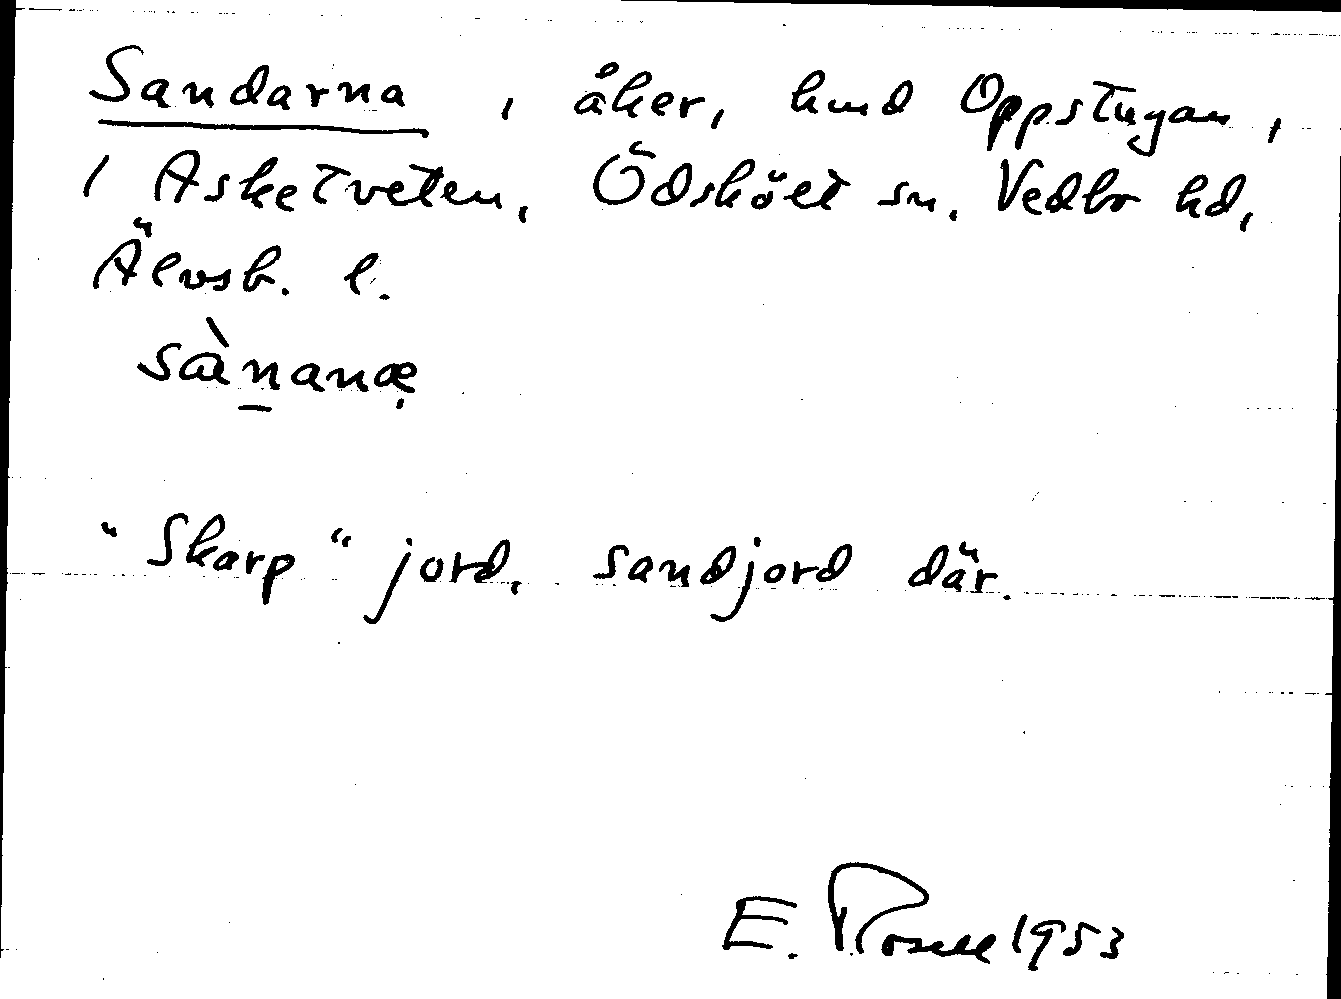 Sandarna , åker, hmd Oppstugan,
1 Asketveten, Ödsköłt sn. Vedbo hd,
Älvsb. l.
sànanæ
"Skarp" jord, sandjord där.
E. Rosell 1953